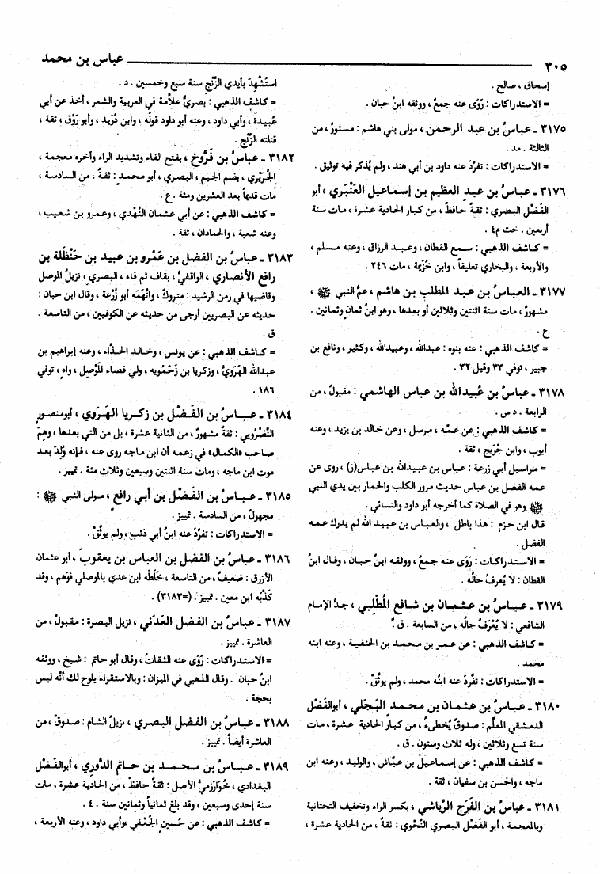 ٣٠٥
عباس بن محمد
إسحاق ، صالح .
= الاستدراكات : رَوَى عنه جمعٌ ، ووثقه ابنُ حبان .
٣١٧٥ ـ عباسُ بن عبد الرحمن ، مولى بني هاشم : مستورٌ ، من
الثالثة . مد .
= الاستدراكات : تفرّدَ عنه داود بن أبي هند ، ولم يُذكر فيه توثيق .
٣١٧٦ ـ عباسُ بن عبد العظيم بن إسماعيل العَنْبَري ، أبو
الفَضْل البصري : ثقةٌ حافظٌ ، من كبار الحادية عشرة ، مات سنة
أربعين . خت م٤ .
= كاشف الذهبي : سمع القطان ، وعبد الرزاق ، وعنه مسلم ،
والأربعة ، والبخاري تعليقاً ، وابن خُزيمة ، مات ٢٤٦ .
٣١٧٧ ـ العباسُ بن عبد المطلب بن هاشم ، عمُّ النبي ﷺ ،
مشهورٌ ، مات سنة اثنتين وثلاثين أو بعدها ، وهو ابنُ ثمانٍ وثمانين .
ع .
= كاشف الذهبي : عنه بنوه : عبدالله ، وعبيدالله ، وكثير ، ونافع بن
جبير ، توفي ٣٣ وقيل ٣٢ .
٣١٧٨ ـ عباسُ بن عُبيدالله بن عباس الهاشمي : مقبولٌ ، من
الرابعة . د س .
= كاشف الذهبي : عن عمّه ، مرسل ، وعن خالد بن يزيد ، وعنه
أيوب ، وابن جُريج ، ثقة .
= مراسيل أبي زرعة : عباس بن عبيدالله بن عباس(ز) روى عن
عمه الفضل بن عباس حديث مرور الكلب والحمار بين يدي النبي
ﷺ وهو في الصلاة كما أخرجه أبو داود والنسائي .
قال ابن حزم : هذا باطل ، والعباس بن عبيد الله لم يدرك عمه
الفضل .
= الاستدراكات : رَوَى عنه جمعٌ ، ووثقه ابنُ حبان ، وقال ابنُ
القطان : لا يُعرفُ حاله .
٣١٧٩ ـ عباسُ بن عثمان بن شافع المُطَّلِبي ، جدُّ الإمام
الشافعي : لا يُعْرَفُ حالُه ، من السابعة . ق .
= كاشف الذهبي : عن عمر بن محمد بن الحنفية ، وعنه ابنه
محمد .
= الاستدراكات : تفرّدَ عنه ابنُه محمد ، ولم يوثَّقْ .
٣١٨٠ ـ عباسُ بن عثمان بن محمد البَجَلي ، أبوالفَضْل
الدمشقي المعلِّم : صدوقٌ يُخطىءُ ، من كبار الحادية عشرة ، مات
سنة تسع وثلاثين ، وله ثلاثٌ وستون . ق .
= كاشف الذهبي : عن إسماعيل بن عيّاش ، والوليد ، وعنه ابن
ماجه ، والحسن بن سفيان ، ثقة .
٣١٨١ ـ عباسُ بن الفَرَج الرِّيَاشي ، بكسر الراء وتخفيف التحتانية
وبالمعجمة ، أبو الفَضْل البصري النحْوي : ثقةٌ ، من الحادية عشرة ،
استُشهِدَ بأيدي الزِّنْج سنة سبع وخمسين . د .
= كاشف الذهبي : بصريٌّ علامةٌ في العربية والشعر ، أخذ عن أبي
عُبيدة ، وأبي داود ، وعنه أبو داود قوله ، وابن دُريد ، وأبو رَوْق ، ثقة ،
قتلته الزِّنْج .
٣١٨٢ ـ عباسُ بن فَرُّوخ ، بفتح الفاء وتشديد الراء وآخره معجمة ،
الجُرَيْري ، بضم الجيم ، البصري ، أبو محمد : ثقةٌ ، من السادسة ،
مات قديماً بعد العشرين ومئة . ع .
= كاشف الذهبي : عن أبي عثمان النَّهْدي ، وعمرو بن شعيب ،
وعنه شعبة ، والحمادان ، ثقة .
٣١٨٣ ـ عباسُ بن الفضل بن عَمْرو بن عبيد بن حَنْظَلة بن
رافع الأنصاري ، الواقفيُّ ، بقاف ثم فاء ، البصري ، نزيلُ الموصل
وقاضيها في زمن الرشيد : متروكٌ ، واتَّهمَه أبو زُرْعة ، وقال ابن حبان :
حديثه عن البصريين أرجى من حديثه عن الكوفيين ، من التاسعة .
ق
= كاشف الذهبي : عن يونس ، وخالد الحذّاء ، وعنه إبراهيم بن
عبدالله الهَرَويُّ ، وزكريا بن زَحْمُويه ، ولي قضاء المَوْصِل ، واهٍ ، توفي
١٨٦ .
٣١٨٤ ـ عباسُ بن الفَضْل بن زكريا الهَرَوي ، أبومنصور
النَّضْرَوِيي : ثقةٌ مشهورٌ ، من الثانية عشرة ، بل من التي بعدها ، وهِمَ
صاحب «الكمال» في زعمه أن ابن ماجه روى عنه ، فإنه وُلِدَ بعد
موت ابن ماجه ، ومات سنة اثنتين وسبعين وثلاث مئة . تمييز .
٣١٨٥ ـ عباسُ بن الفَضْل بن أبي رافع ، مولى النبي ﷺ :
مجهولٌ ، من السادسة . تمييز .
= الاستدراكات : تفرّدَ عنه ابنُ أبي ذئب ، ولم يوثَّقْ .
٣١٨٦ ـ عباسُ بن الفضل بن العباس بن يعقوب ، أبو عثمان
الأزرق : ضعيفٌ ، من التاسعة ، خلَطَه ابن عدي بالموصلي فوَهِمَ ، وقد
كذَّبه ابن معين . تمييز . (=٣١٨٣) .
٣١٨٧ ـ عباسُ بن الفضل العَدَني ، نزيل البصرة : مقبولٌ ، من
العاشرة . تمييز .
= الاستدراكات : رَوَى عنه الثقاتُ ، وقال أبو حاتم : شيخٌ ، ووثقه
ابنُ حبان . وقال الذهبي في الميزان : وبالاستقراء يلوح لك أنه ليس
بحجة .
٣١٨٨ ـ عباسُ بن الفضل البصري ، نزيلُ الشام : صدوقٌ ، من
العاشرة أيضاً . تمييز .
٣١٨٩ ـ عباسُ بن محمد بن حاتم الدُّوري ، أبوالفَضْل
البغدادي ، خُوارَزميُّ الأصل : ثقةٌ حافظٌ ، من الحادية عشرة ، مات
سنة إحدى وسبعين ، وقد بلغ ثمانياً وثمانين سنة . ٤ .
= كاشف الذهبي : عن حُسين الجُعْفي وأبي داود ، وعنه الأربعة ،